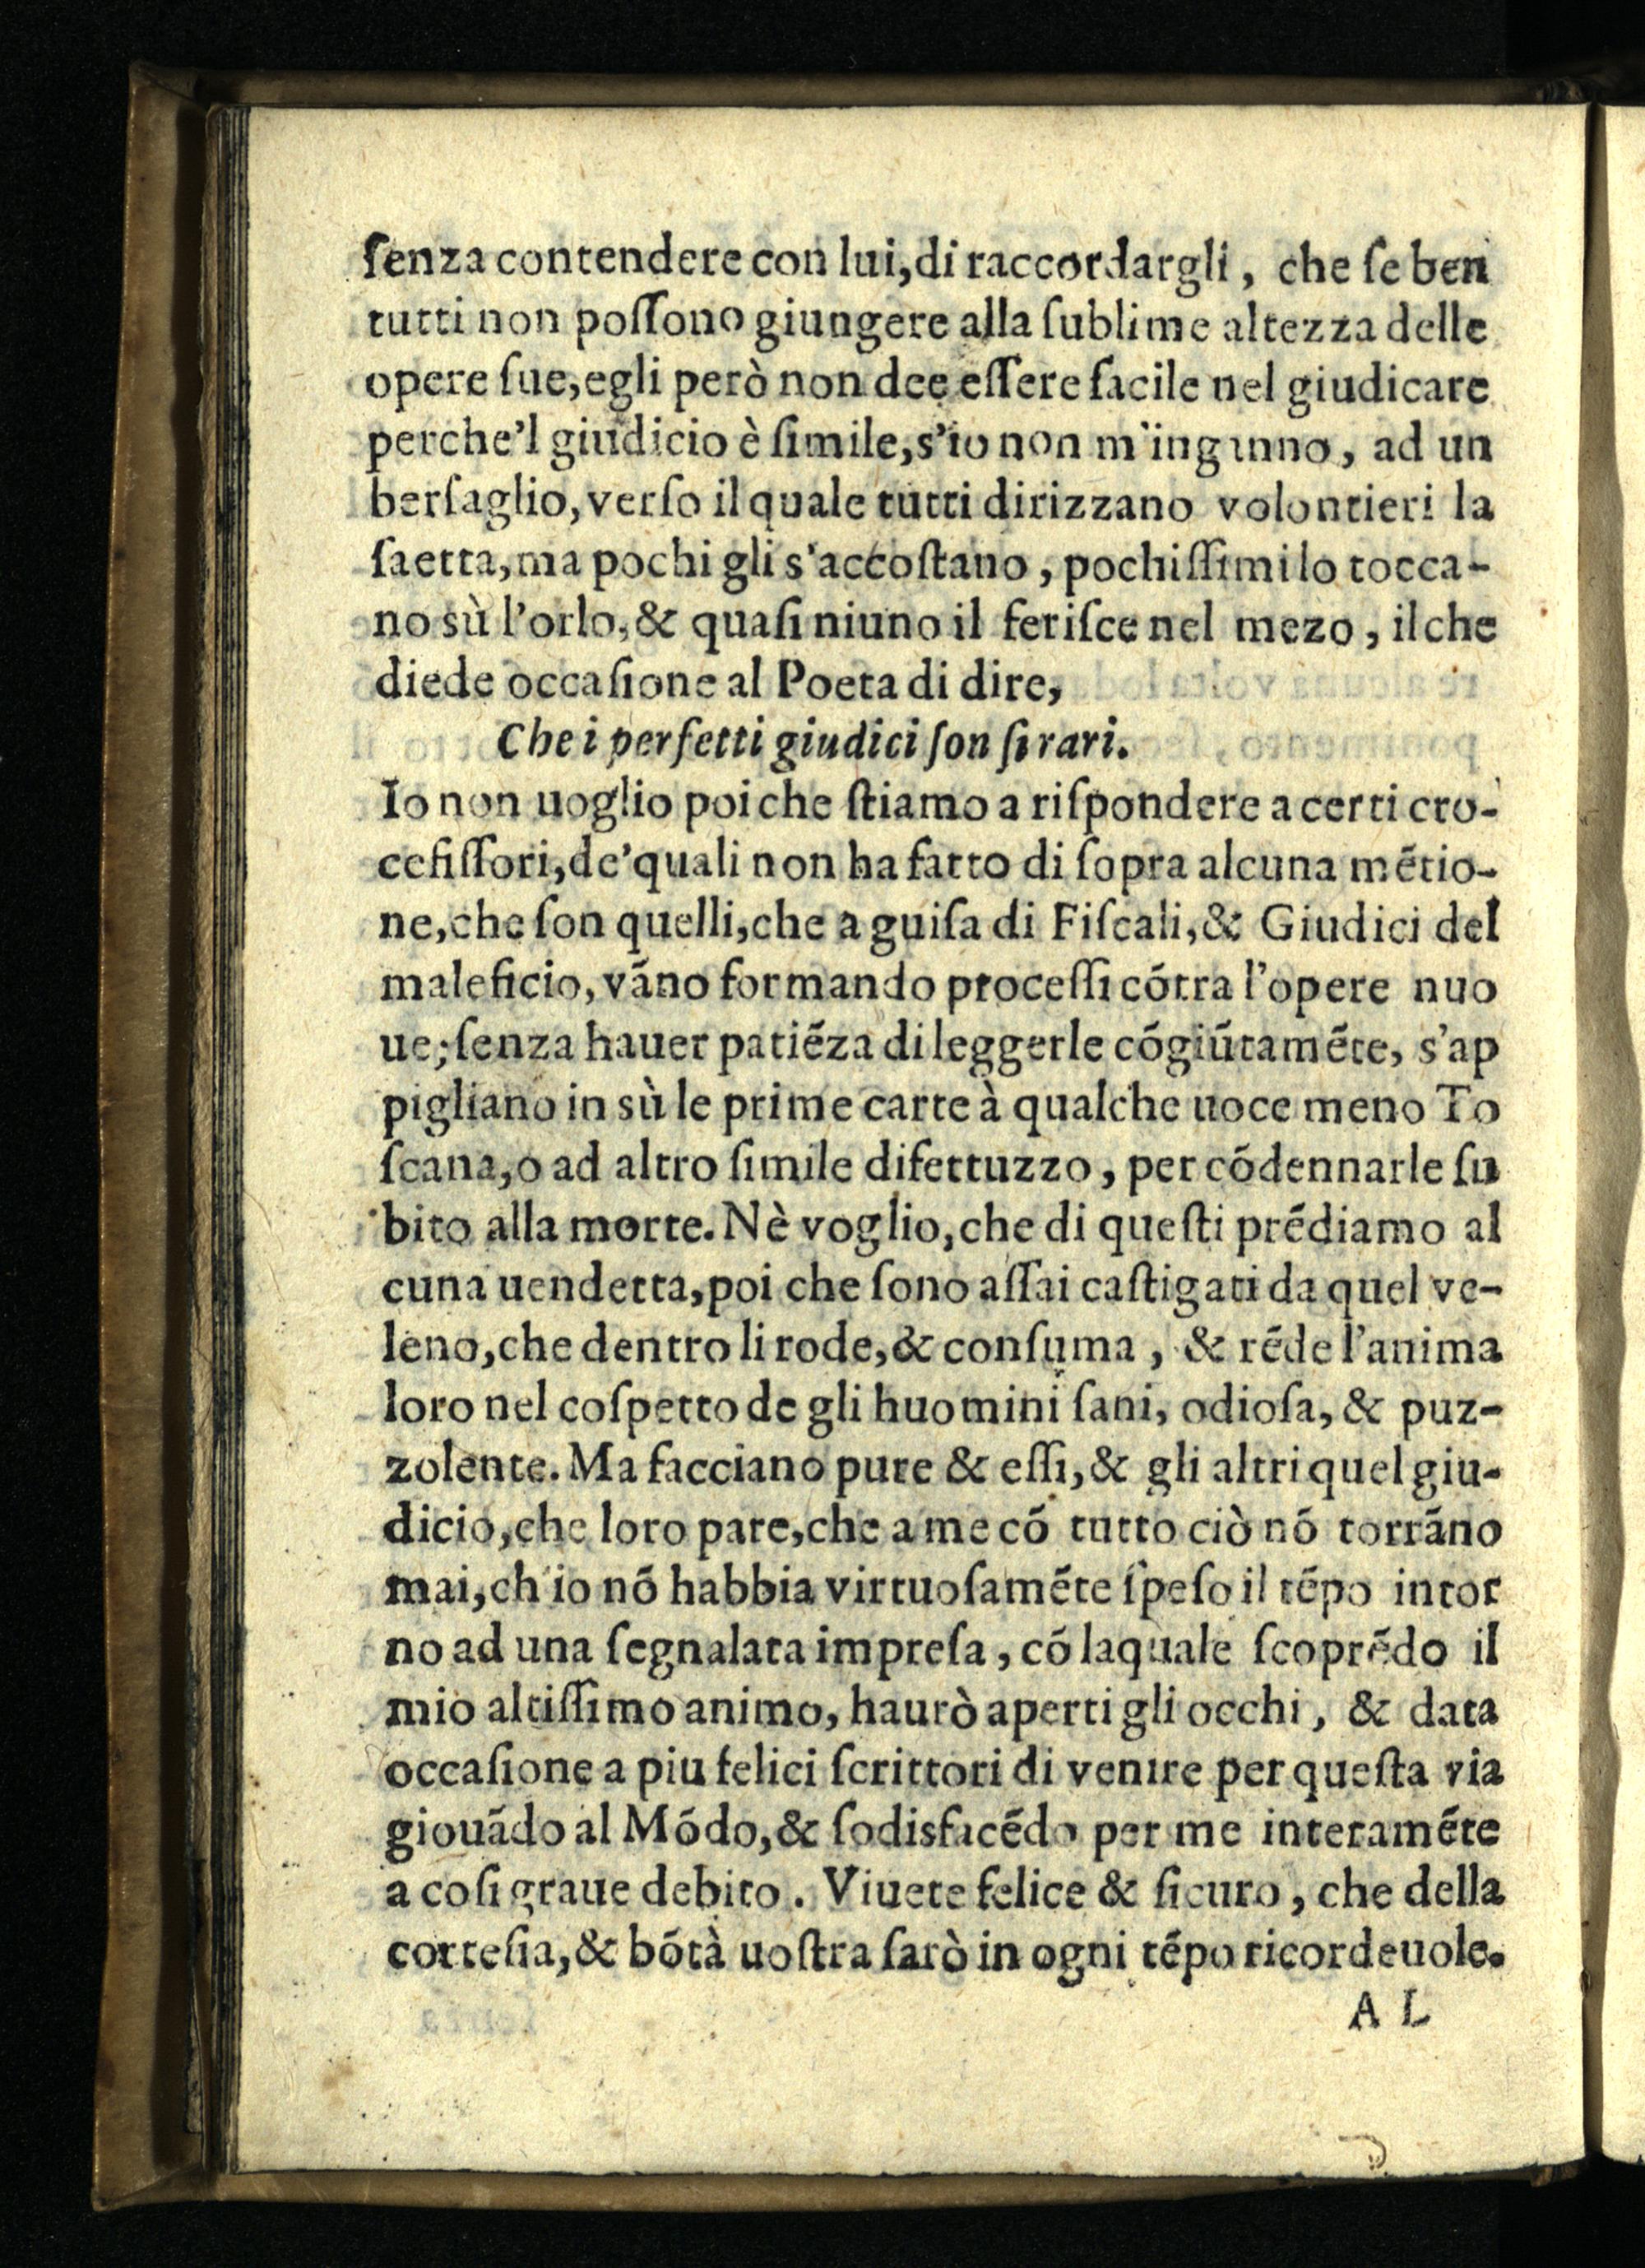 ſenza contendere con lui, di raccordargli, che ſe ben
tutti non poſſono giungere alla ſublime altezza delle
opere ſue, egli però non dee eſſere facile nel giudicare
perche'l giudicio è ſimile, s'io non m'inganno, ad un
berſaglio, verſo il quale tutti dirizzano volontieri la
ſaetta, ma pochi gli s'accoſtano, pochiſſimi lo tocca-
no sù l'orlo, & quaſi niuno il feriſce nel mezo, il che
diede occaſione al Poeta di dire,
Che i perfetti giudici ſon ſi rari.
Io non uoglio poi che ſtiamo a riſpondere a certi cro-
cefiſſori, de'quali non ha fatto di ſopra alcuna mẽtio-
ne, che ſon quelli, che a guiſa di Fiſcali, & Giudici del
maleficio, vãno formando proceſſi cõtra l'opere nuo
ue; ſenza hauer patiẽza di leggerle cõgiũtamẽte, s'ap
pigliano in sù le prime carte à qualche uoce meno To
ſcana, o ad altro ſimile difettuzzo, per cõdennarle ſu
bito alla morte. Nè voglio, che di queſti prẽdiamo al
cuna uendetta, poi che ſono aſſai caſtigati da quel ve-
leno, che dentro li rode, & conſuma, & rẽde l'anima
loro nel coſpetto de gli huomini ſani, odioſa, & puz-
zolente. Ma facciano pure & eſſi, & gli altri quel giu-
dicio, che loro pare, che a me cõ tutto ciò nõ torrãno
mai, ch'io nõ habbia virtuoſamẽte ſpeſo il tẽpo intor
no ad una ſegnalata impreſa, cõ laquale ſcoprẽdo il
mio altiſſimo animo, haurò aperti gli occhi, & data
occaſione a piu felici ſcrittori di venire per queſta via
giouãdo al Mõdo, & ſodisfacẽdo per me interamẽte
a coſi graue debito. Viuete felice & ſicuro, che della
corteſia, & bõtà uoſtra ſarò in ogni tẽpo ricordeuole.
A L